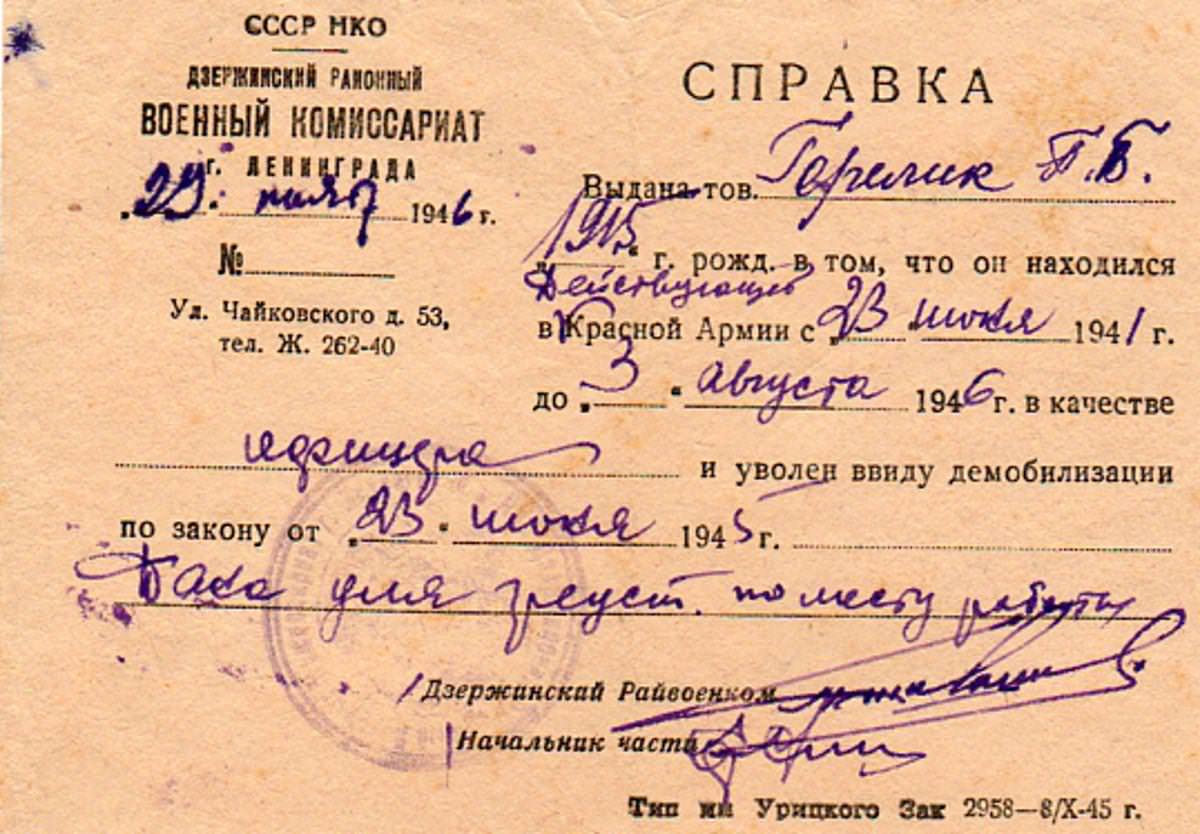 СССР НКО
ДЗЕРЖИНСКИЙ РАЙОННЫЙ
ВОЕННЫЙ КОМИССАРИАТ
г. ЛЕНИНГРАДА
„29. ноября 1946 г.
№
Ул. Чайковского д. 53,
тел. Ж. 262-40
СПРАВКА
Выдана тов. Горелик П.Б.
„1915“ г. рожд. в том, что он находился
Действующей
в Красной Армии с „23 “ июня 1941 г.
до „ 3 “ августа 1946 г. в качестве
офицера и уволен ввиду демобилизации
по закону от „23 “ июня 1945 г.
Дана для по месту работы
Дзержинский Райвоенком
Начальник части
Тип им Урицкого Зак 2958—8/X-45 г.